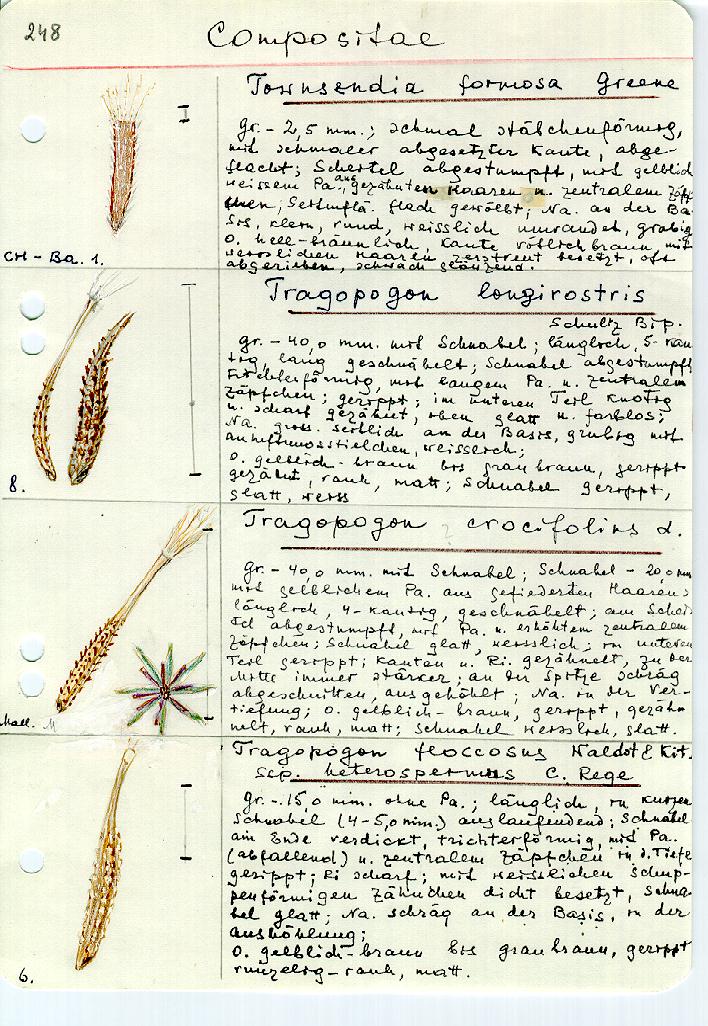 248
Compositae
Townsendia formosa Greene
gr. - 2,5 mm.; schmal stäbchenförmig,
mit schmaler abgesetzter Kante, abge-
flacht; Scheitel abgestumpft, mit gelblich
weissem Pa. aus gezähnten Haaren u. zentralem Zäpf
chen; Seitenflä. flach gewölbt; Na. an der Ba-
sis, klein, rund, weisslich umrandet, grubig
o. hell-bräunlich, Kante rötlichbraun, mit
weisslichen Haaren zerstreut besetzt, oft
abgerieben, schwach glänzend.
CH - Ba. 1.
Tragopogon longirostris
Schultz Bip.
gr. - 40,0 mm. mit Schnabel; länglich, 5-kan
tig, lang geschnäbelt; Schnabel abgestumpft
trichterförmig, mit langem Pa. u. zentralem
Zäpfchen; gerippt; im unteren Teil knotig
u. scharf gezähnt, oben glatt u. farblos;
Na. gross. seitlich an der Basis, grubig mit
weisslich;
o. gelblich-braun bis graubraun, gerippt
gezähnt, rauh, matt; Schnabel gerippt,
glatt, weiss
8.
Tragopogon crocifolius L.
gr. - 40,0 mm. mit Schnabel; Schnabel - 20,0 mm
mit gelblichem Pa. aus gefiederten Haaren;
länglich, 4-kantig, geschnäbelt; am Schei-
tel abgestumpft, mit Pa. u. erhöhtem zentralem
Zäpfchen; Schnabel glatt, weisslich; im unteren
Teil gerippt; Kanten u. Ri. gezähnelt, zu der
Mitte immer stärker; an der Spitze schräg
abgeschnitten, ausgehöhlt; Na. in der Ver-
tiefung; o. gelblich-braun, gerippt, gezäh-
nelt, rauh, matt; Schnabel weisslich, glatt.
Hall. M
Tragopogon floccosus Waldst & Kit.
ssp. heterospermus C. Rege
gr. - 15,0 mm. ohne Pa.; länglich, in kurzen
Schnabel (4-5,0 mm.) auslaufendend; Schnabel
am Ende verdickt, trichterförmig, mit Pa.
(abfallend) u. zentralem Zäpfchen in d. Tiefe
gerippt; Ri scharf; mit weisslichen Schup-
penförmigen Zähnchen dicht besetzt, Schna-
bel glatt; Na. schräg an der Basis, in der
Aushöhlung;
o. gelblich-braun bis graubraun, gerippt
runzelig-rauh, matt.
6.